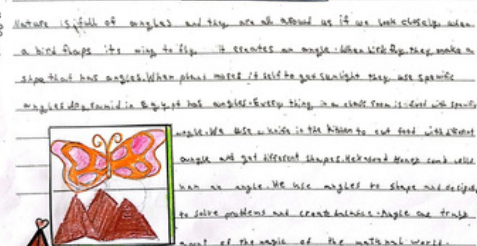 Nature is full of angles and they are all around us if we look closely. when
a bird flaps its wing to fly it creates an angle. When bird fly they make a
shape that has angles. When plant moves it self to get sunlight they use specific
angles. pyramid in Egypt has angles. Every thing in a class room is with specific
angle. We use a knife in the kitchen to cut food with different
angle and get different shapes. Honey comb cells
an angle. We use angles to shape and design,
to solve problems and create balance. Angle are truly
part of the magic of the natural world.